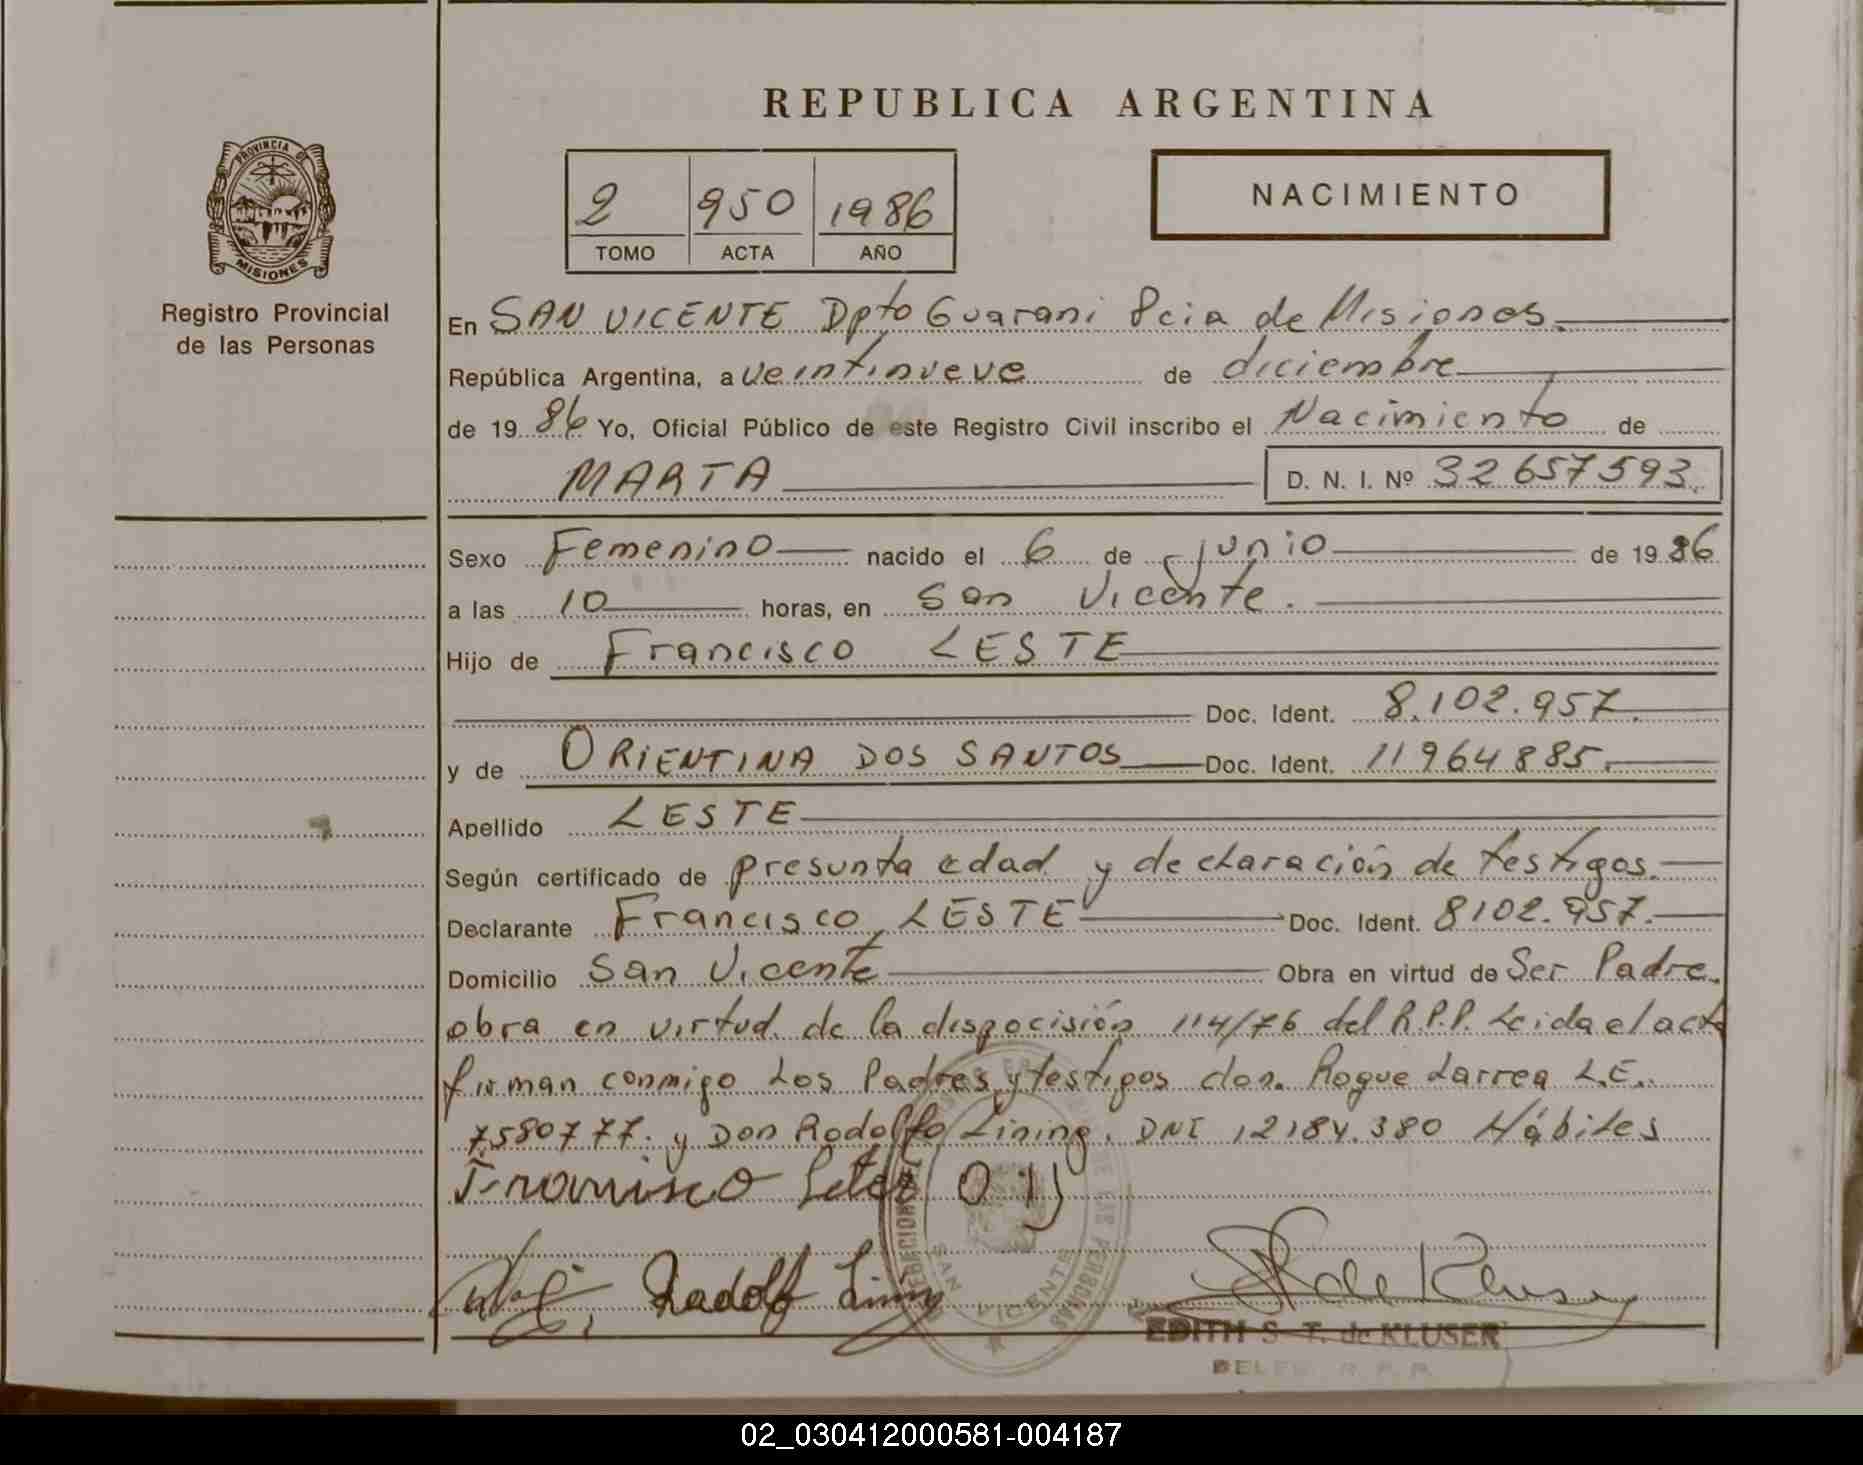 REPUBLICA ARGENTINA
PROVINCIA DE
MISIONES
Registro Provincial
de las Personas
2 950 1986
TOMO ACTA AÑO
NACIMIENTO
En SAN VICENTE Dpto Guarani Pcia de Misiones.
República Argentina, a veintinueve de diciembre
de 19 86 Yo, Oficial Público de este Registro Civil inscribo el Nacimiento de
MARTA D. N. I. Nº 32657593.
Sexo Femenino nacido el 6 de junio de 19 86
a las 10 horas, en San Vicente.
Hijo de Francisco LESTE
Doc. Ident. 8.102.957.
y de ORIENTINA DOS SANTOS Doc. Ident. 11964885.
Apellido LESTE
Según certificado de presunta edad y declaración de testigos.
Declarante Francisco LESTE Doc. Ident. 8102.957.
Domicilio San Vicente Obra en virtud de Ser Padre.
obra en virtud de la dispocisión 114/76 del R.P.P. Leida el acta
firman conmigo Los Padres y testigos don. Roque Larrea L.E.
7580777. y Don Rodolfo Lining. DNI 12184.380 Hábiles
Francisco
Rodolf
SAN VICENTE
de Kluser
EDITH S. T. de KLUSER
02_030412000581-004187